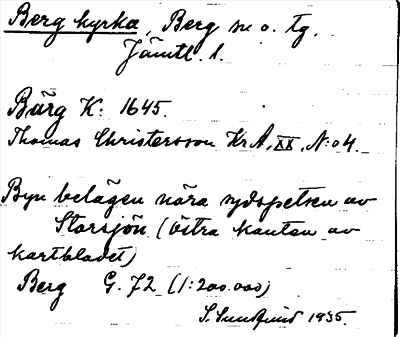 Berg kyrka, Berg sn o. tg.
Jämtl. l.
Bärg K: 1645.
Thomas Christersson KrA, XX, N:o 4.
Byn belägen nära sydspetsen av
Storsjön (östra kanten av
kartbladet)
Berg G. 72 (1:200.000)
S. Sundquist 1935.